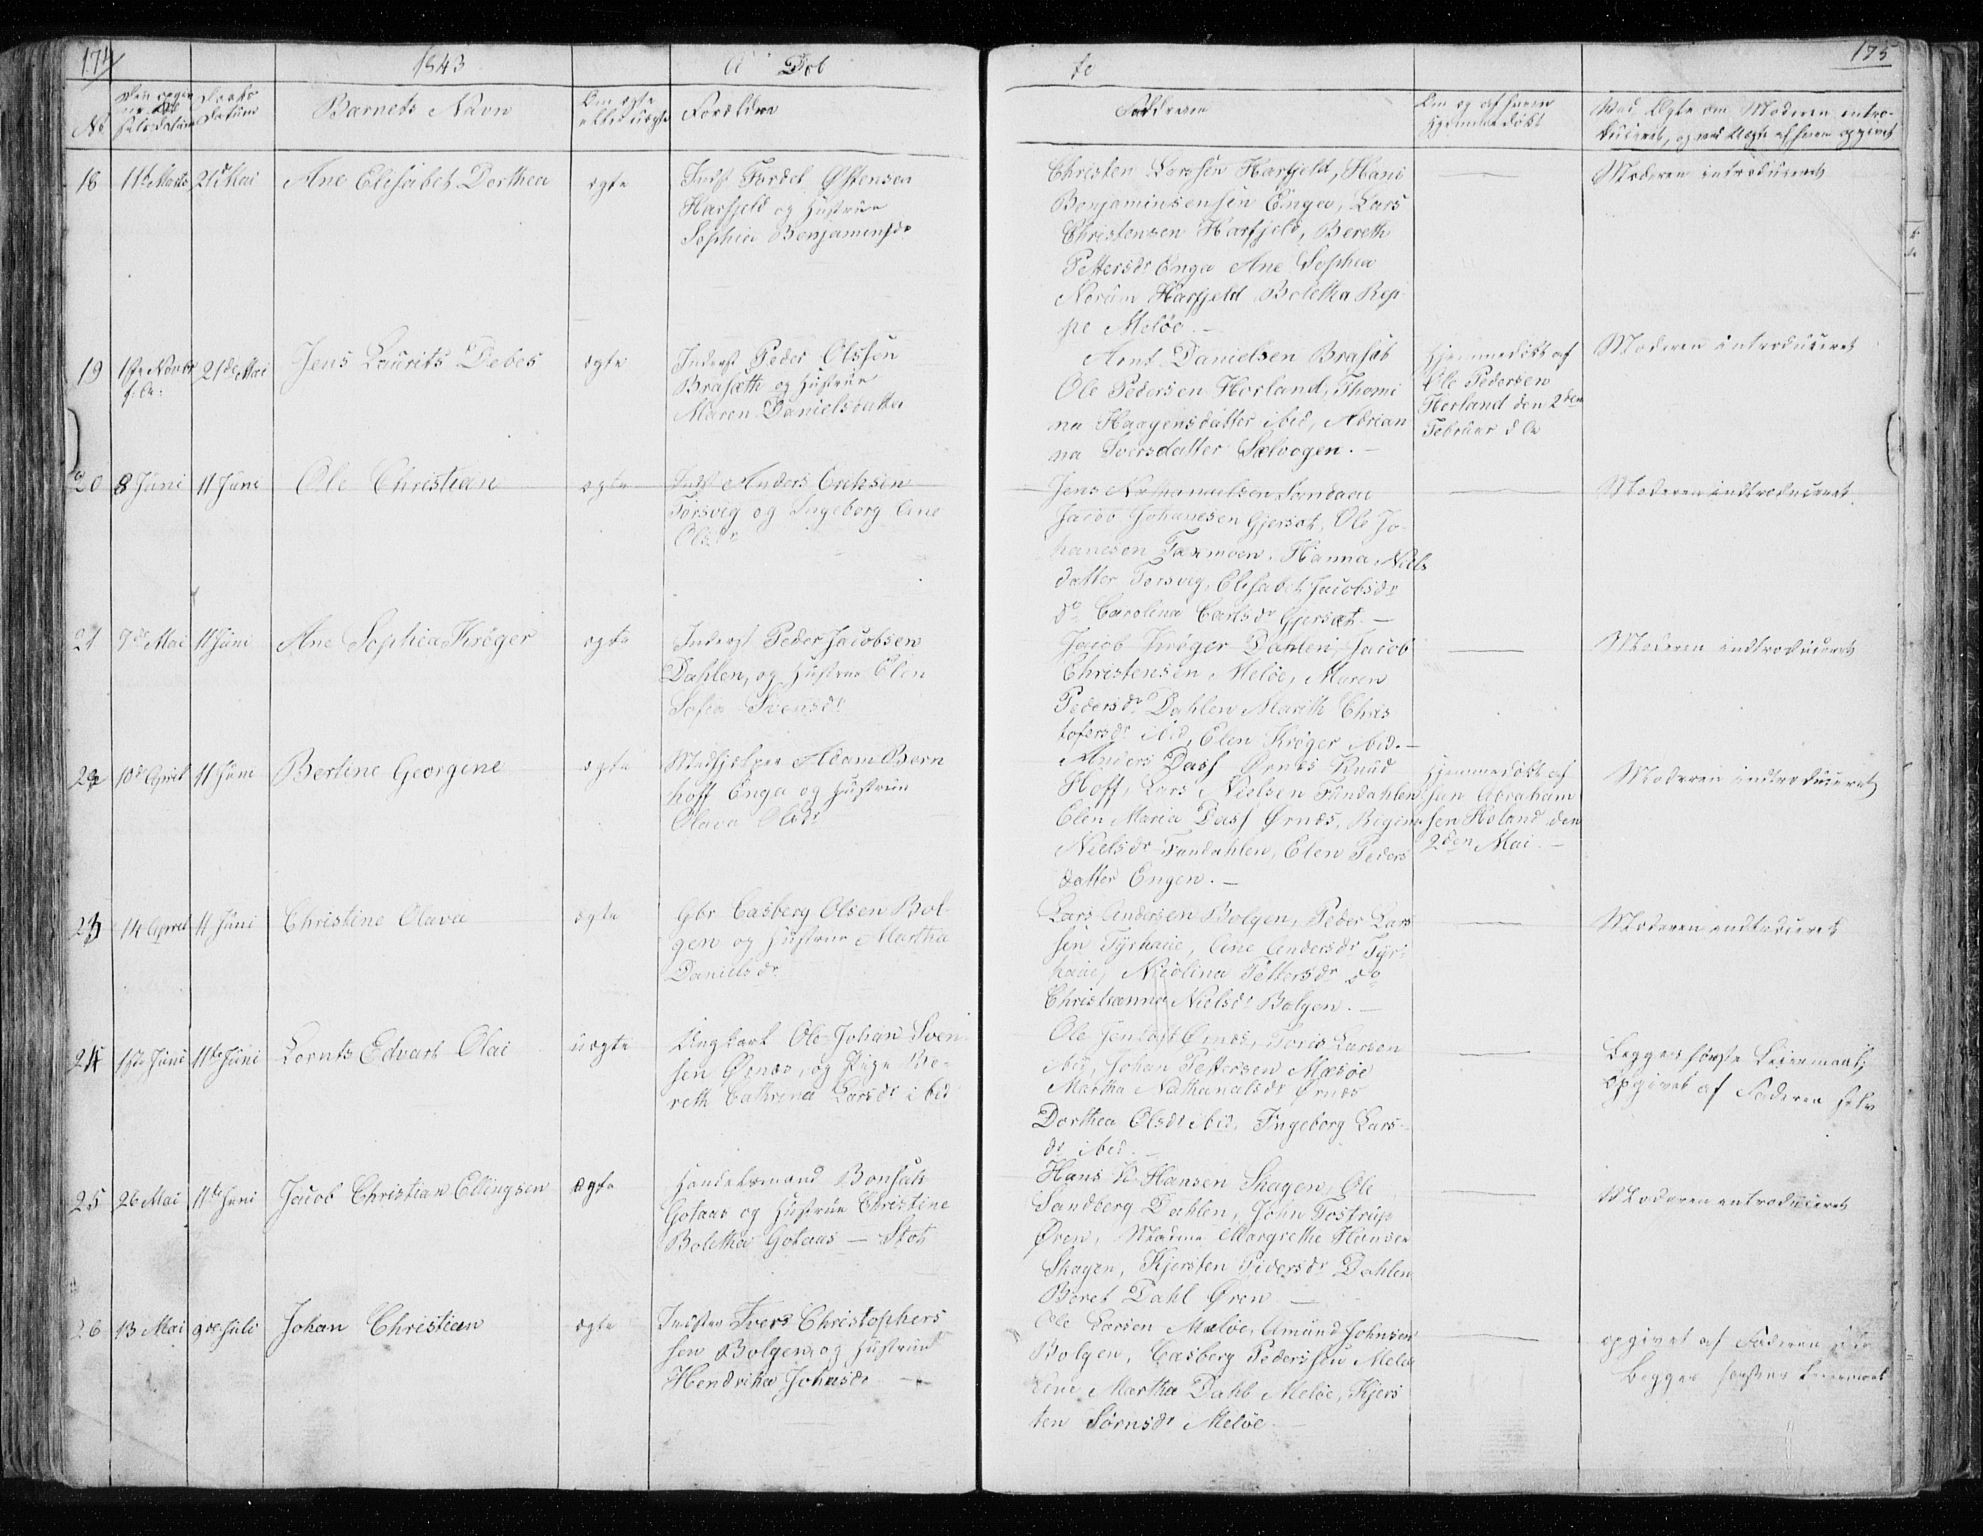 174
1843
Døb
Barnets Navn
Forældre
18 11te Marts 21de Mai Ane Elisabet Dorthea ægte Indst Fordel Østensen
Harfjeld og Hustrue
Sophia Benjaminsdr
19 1ste Novbr 21de Mai Jens Laurits Debes ægte Inderst Peder Olssen
f: A:
Brasætt og Hustrue
Maren Danielsdatter
20 8 Juni 11 Juni Ole Christian ægte Indst Anders Erichsen
Torsvig og Ingeborg Ane
Olsdr
21 7de Mai 11 Juni Ane Sophia Krøger ægte Inderst Peder Jacobsen
Dahlen, og Hustrue Elen
Sofia Svensdr
22 10de April 11 Juni Bertine Georgine ægte Medhjelper Adam Bern
hoff Enga og Hustrue
Olava Olsdr
23 14 April 11 Juni Christine Olava ægte Gbr Casberg Olsen Bol
gen og Hustrue Martha
Danielsdr
24 1ste Juni 11te Juni Lornts Edvart Olai uægte Ungkarl Ole Johan Sven
sen Ørnæs, og Pige Be-
reth Cathrina Larsdr ibid
25 26 Mai 11te Juni Jacob Christian Ellingsen ægte Handelsmand Bonsak
Gotaas og Hustrue Christine
Boletha Gotaas — Stot
26 13 Mai 9de Juli Johan Christian ægte Indster Ivers Christophers
sen Bolgen, og Hustrue
Hendrika Johnsdr —
te
175
Faddrene
Christen Larssen Harfjeld, Hans
Benjaminsensen Enga, Lars
Christensen Harfjeld, Bereth
Pettersdr Enga Ane Sophia
Norum Harfjeld Boletha Rep-
pe Meløe. —
Moderen introduceret
Arnt Danielsen Brasæt
Ole Pedersen Horland, Thomi
na Haagensdatter ibid, Adrian
na Iversdatter Sælvogen. —
Hjemmedøbt af
Ole Pedersen
Horland den 2den
Februar d A
Moderen introduceret
Jens Nathanaelsen Sandaa
Jacob Johansen Gjersæt, Ole Jo-
hanesen Taxmoen, Hanna Niels
datter Torsvig, Elisabet Jacobsdr
do Carolina Carlsdr Gjersæt. —
Moderen indtroduceret
Jacob Krøger Dahlen, Jacob
Christensen Meløe, Maren
Pedersdr Dahlen Marith Chris
tofersdr ibid, Elen Krøger ibid. —
Moderen indtroduceret
Anders Dass Ørnæs Knud
Hoff, Lars Nielsen Fundahlen
Elen Maria Dass Ørnæs, Regina
Nielsdr Fundahlen, Elen Peders
datter Engen. —
Hjemmedøbt af
Abraham
sen Holand den
2den Mai. —
Moderen indtroduceret
Lars Andersen Bolgen, Peder Lars
sen Tyrhaue, Ane Andersdr Tyr-
haue, Nicolina Pettersdr do
Christianna Nielsdr Bolgen. —
Moderen indtroduceret
Ole Jentoft Ørnæs, Joris Larsen
ibid, Johan Pettersen Mæsøe
Martha Nathanalsdr Ørnæs
Dorthea Olsdr ibid, Ingeborg Lars-
dr ibid. —
Begges første Leiermaal;
opgivet af Faderen selv
Hans H Hansen Skagen, Ole
Sandberg Dahlen, John Fostrup
Øren, Madme Margrethe Hansen
Skagen, Kjersten Pedersdr Dahlen
Beret Dahl Øren —
Moderen introduceret
Ole Larsen Meløe, Amund Johnsen
Bolgen, Casberg Pederssen Meløe
Ane Martha Dahl Meløe, Kjers
ten Sørnsdr Meløe —
opgivet af Faderen
Begges første Leiermaal